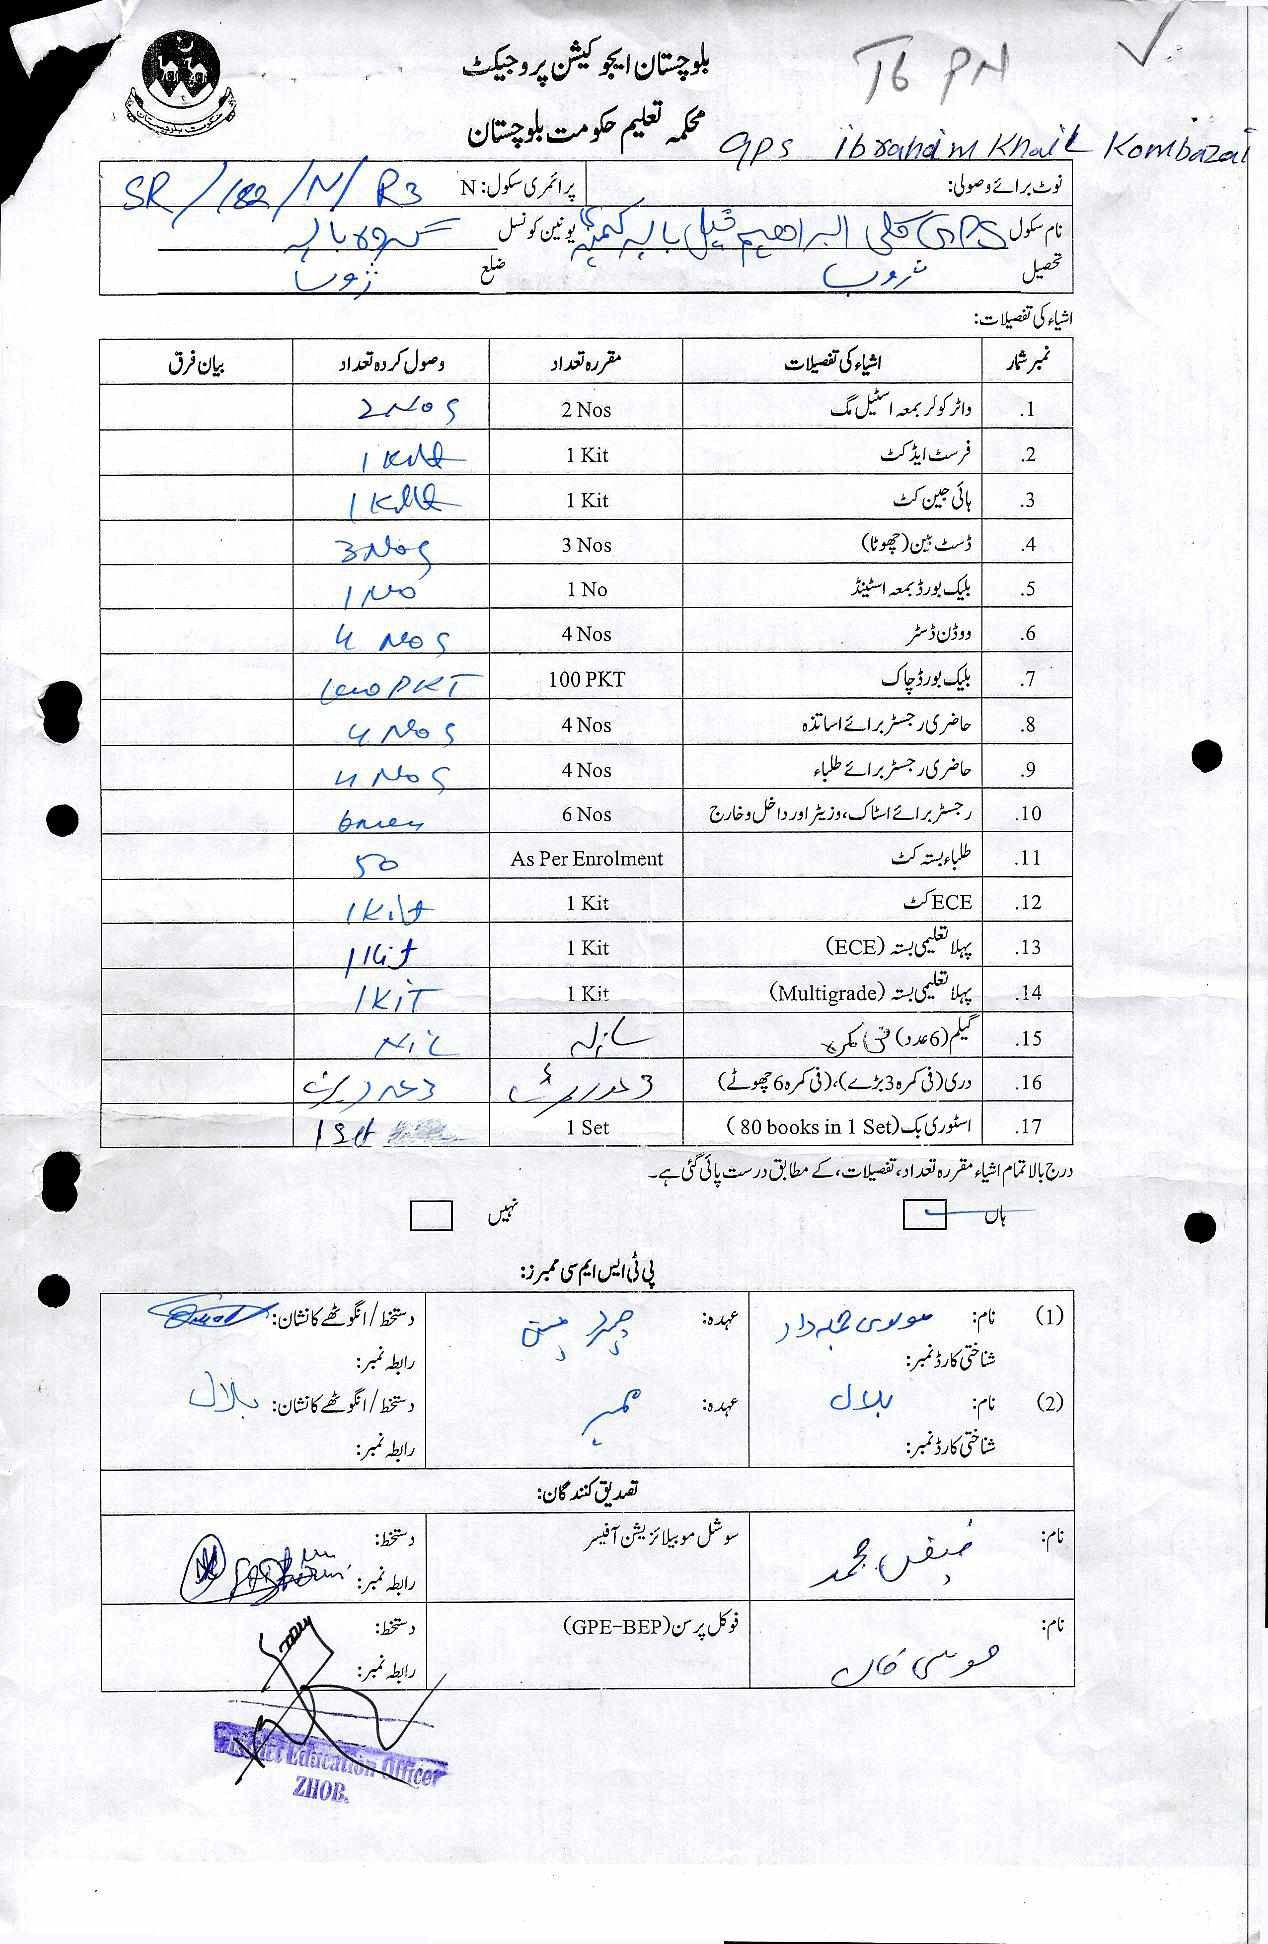 بلوچستان ایجوکیشن پروجیکٹ
T6 PN
محکمہ تعلیم حکومت بلوچستان
GPS ibrahim Khail Kombazai
نوٹ برائے وصولی: پرائمری سکول: N SR/182/N/R3
نام سکول GPS کلی ابراھیم خیل بالہ یونین کونسل
تحصیل ژوب ضلع ژوب
اشیاء کی تفصیلات:
نمبر شمار اشیاء کی تفصیلات مقررہ تعداد وصول کردہ تعداد بیان فرق
1. واٹر کولر بمعہ اسٹیل مگ 2 Nos 2 Nos
2. فرسٹ ایڈ کٹ 1 Kit 1 Kit
3. ہائی جین کٹ 1 Kit 1 Kit
4. ڈسٹ بین (چھوٹا) 3 Nos 3 Nos
5. بلیک بورڈ بمعہ اسٹینڈ 1 No 1 No
6. ووڈن ڈسٹر 4 Nos 4 Nos
7. بلیک بورڈ چاک 100 PKT 100 PKT
8. حاضری رجسٹر برائے اساتذہ 4 Nos 4 Nos
9. حاضری رجسٹر برائے طلباء 4 Nos 4 Nos
10. رجسٹر برائے اسٹاک، وزیٹر اور داخل و خارج 6 Nos
11. طلباء بستہ کٹ As Per Enrolment 50
12. ECE کٹ 1 Kit 1 Kit
13. پہلا تعلیمی بستہ (ECE) 1 Kit 1 Kit
14. پہلا تعلیمی بستہ (Multigrade) 1 Kit 1 KiT
15. گیلم (6 عدد) فی کمرہ Nil
16. دری (فی کمرہ 3 بڑے)، (فی کمرہ 6 چھوٹے)
17. اسٹوری بک (80 books in 1 Set) 1 Set 1 Set
درج بالا تمام اشیاء مقررہ تعداد، تفصیلات، کے مطابق درست پائی گئی ہے۔
ہاں نہیں
پی ٹی ایس ایم سی ممبرز:
(1) نام: مولوی عہدہ: چیرمین دستخط/انگوٹھے کا نشان:
شناختی کارڈ نمبر: رابطہ نمبر:
(2) نام: بلال عہدہ: ممبر دستخط/انگوٹھے کا نشان: بلال
شناختی کارڈ نمبر: رابطہ نمبر:
تصدیق کنندگان:
نام: فیض محمد سوشل موبیلائزیشن آفیسر دستخط:
رابطہ نمبر:
نام: موسی خان فوکل پرسن (GPE-BEP) دستخط:
رابطہ نمبر:
District Education Officer
ZHOB.